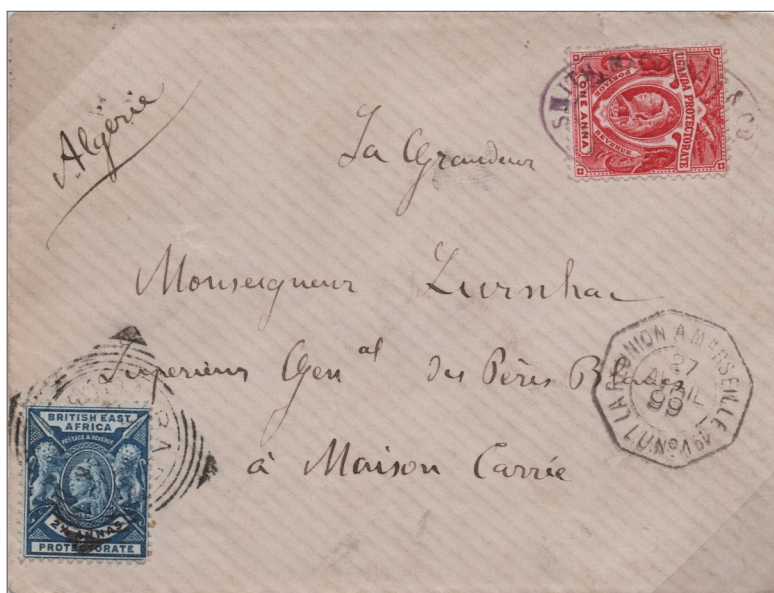 Algérie
UGANDA PROTECTORATE
POSTAGE
REVENUE
ONE ANNA
SMITH & CO
Sa Grandeur
Monseigneur Livinhac
Superieur Gen al des Pères Blancs
à Maison Carrée
LA REUNION A MARSEILLE
LU N
27
AVRIL
99
BRITISH EAST
AFRICA
POSTAGE & REVENUE
2½ ANNAS
PROTECTORATE